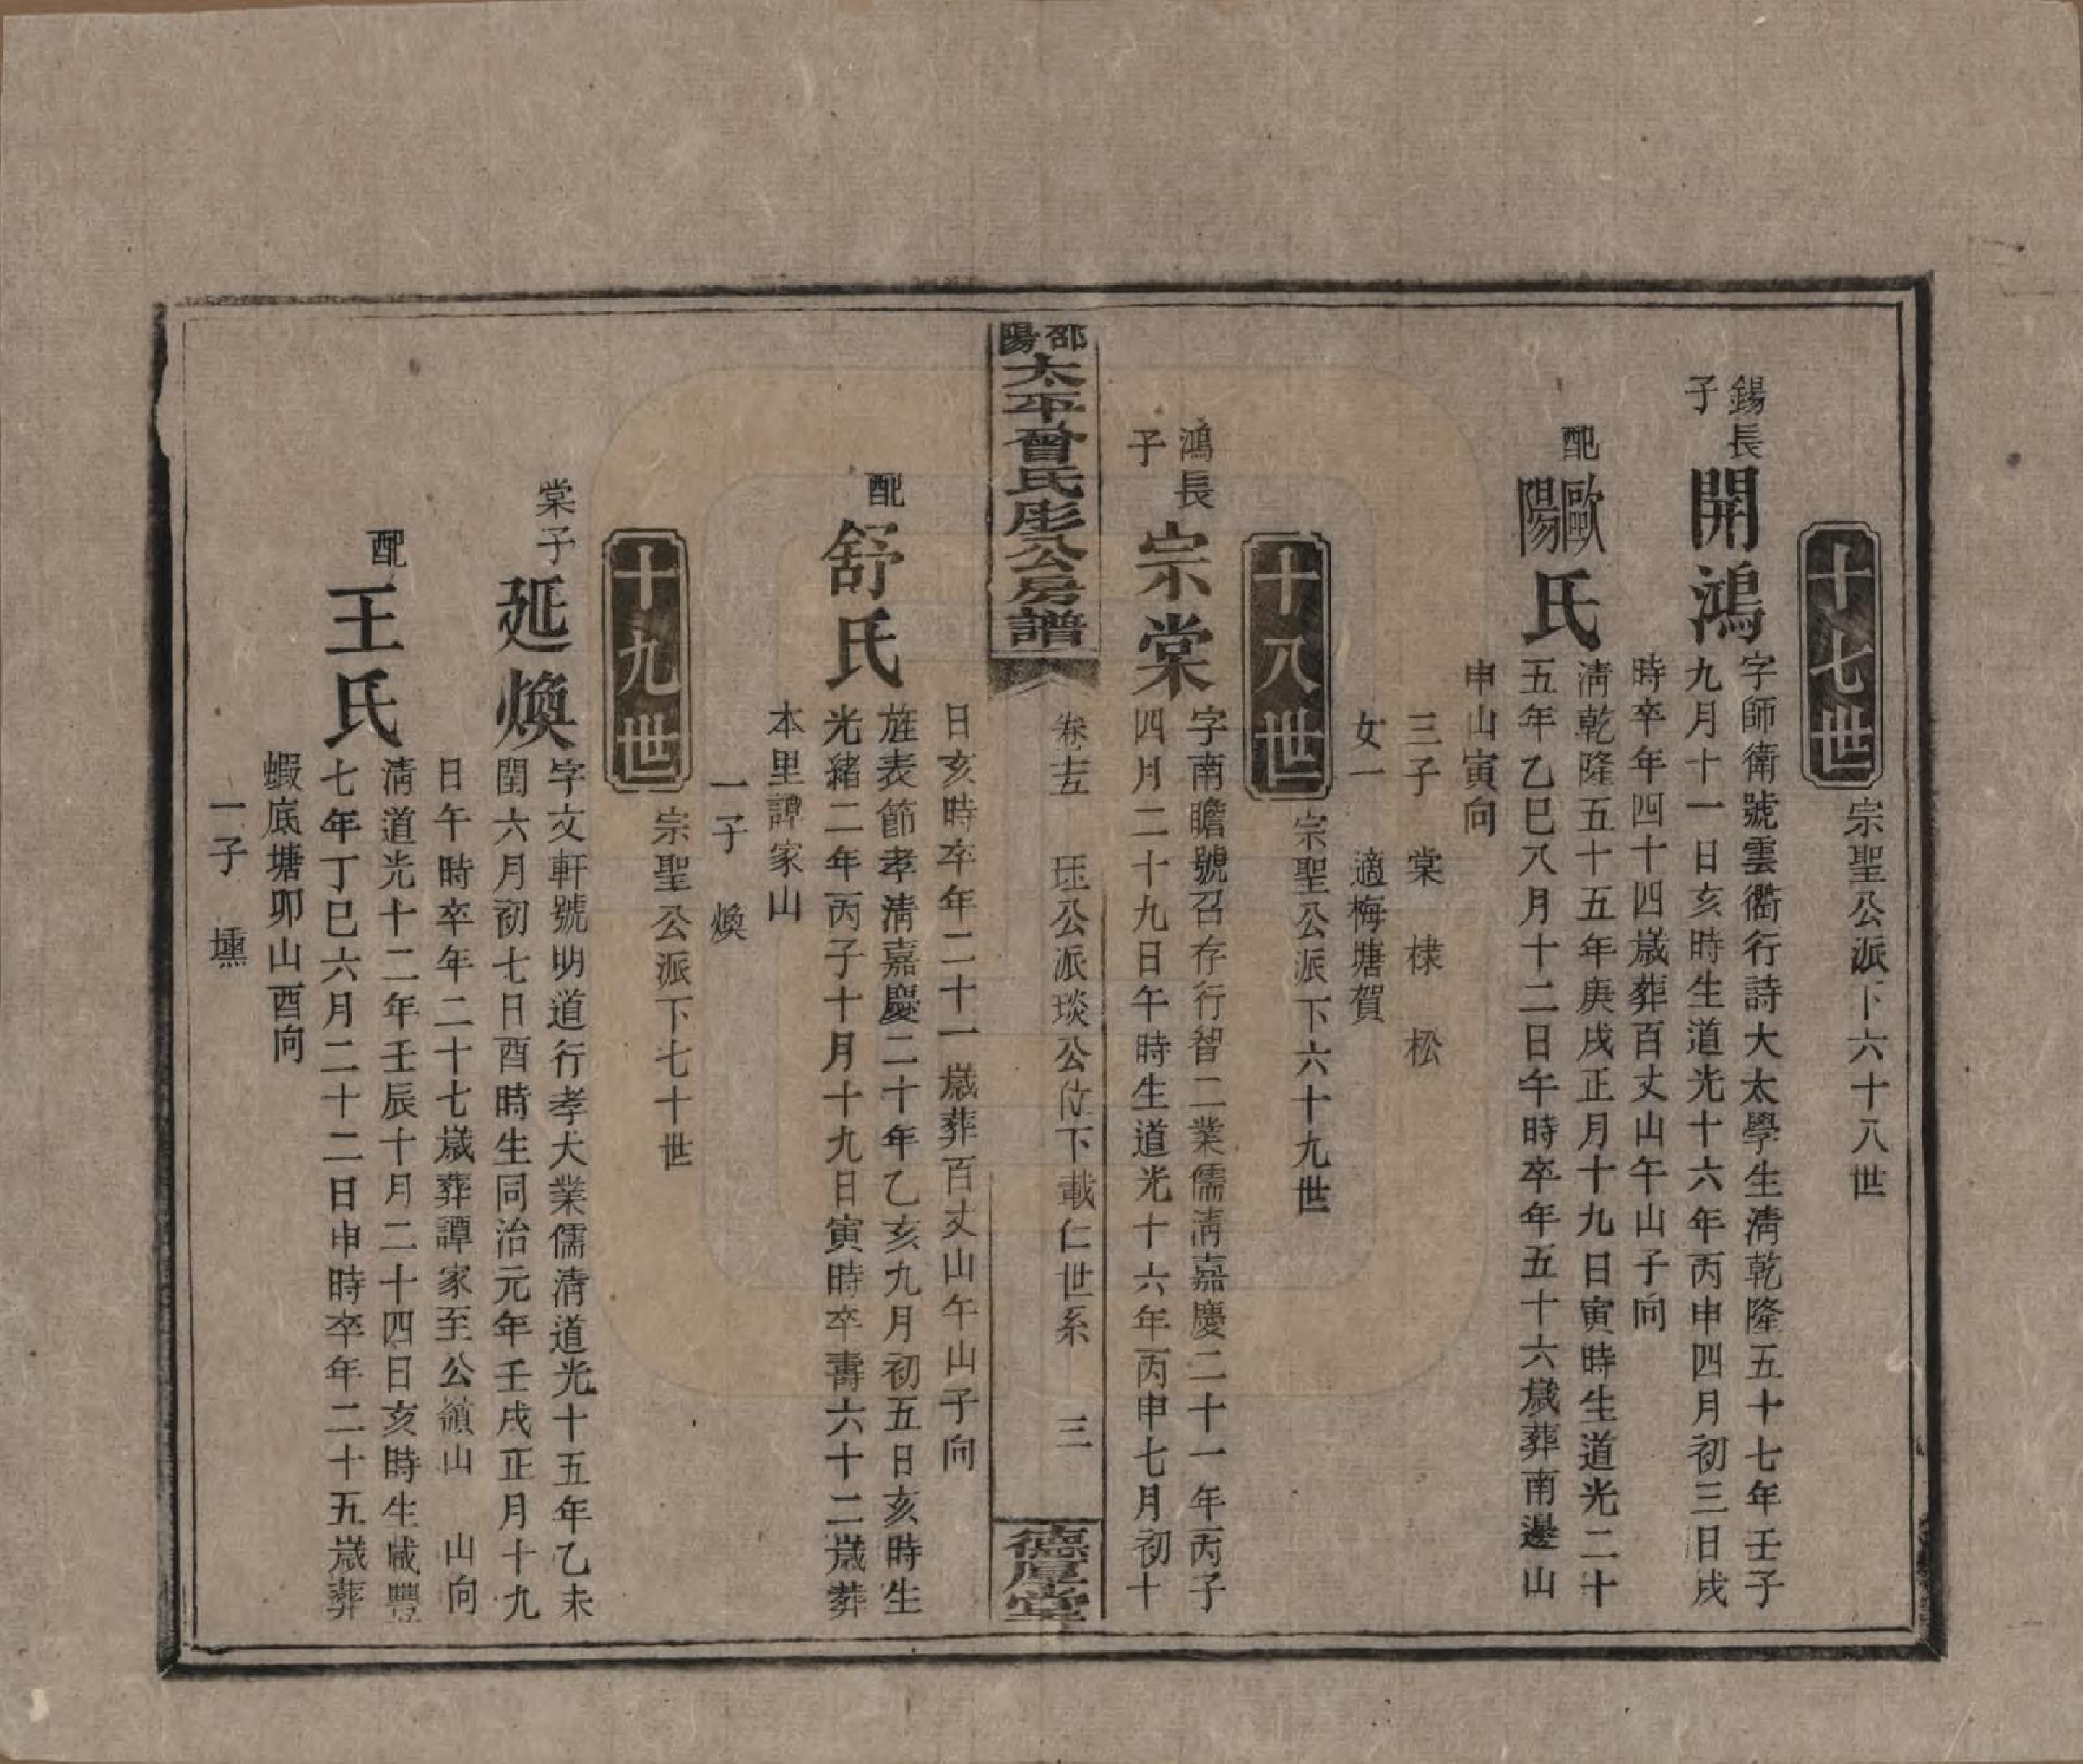 十七世
宗聖公派下六十八世
錫長子
開鴻
字師衛號雲衢行詩大太學生淸乾隆五十七年壬子
九月十一日亥時生道光十六年丙申四月初三日戌
時卒年四十四歲葬百丈山午山子向
配
歐陽氏
淸乾隆五十五年庚戌正月十九日寅時生道光二十
五年乙巳八月十二日午時卒年五十六歲葬南邊山
申山寅向
三子 棠 棣 松
女一 適梅塘賀
十八世
宗聖公派下六十九世
鴻長子
宗棠
字南瞻號召存行智二業儒淸嘉慶二十一年丙子
四月二十九日午時生道光十六年丙申七月初十
邵陽太平曾氏彪公房譜
卷 珏公派琰公位下載仁世系 三
德厚堂
日亥時卒年二十一歲葬百丈山午山子向
配
舒氏
旌表節孝淸嘉慶二十年乙亥九月初五日亥時生
光緒二年丙子十月十九日寅時卒壽六十二歲葬
本里譚家山
一子 煥
十九世
宗聖公派下七十世
棠子
延煥
字文軒號明道行孝大業儒淸道光十五年乙未
閏六月初七日酉時生同治元年壬戌正月十九
日午時卒年二十七歲葬譚家至公嶺山 山向
配
王氏
淸道光十二年壬辰十月二十四日亥時生咸豐
七年丁巳六月二十二日申時卒年二十五歲葬
蝦底塘卯山酉向
一子 壎